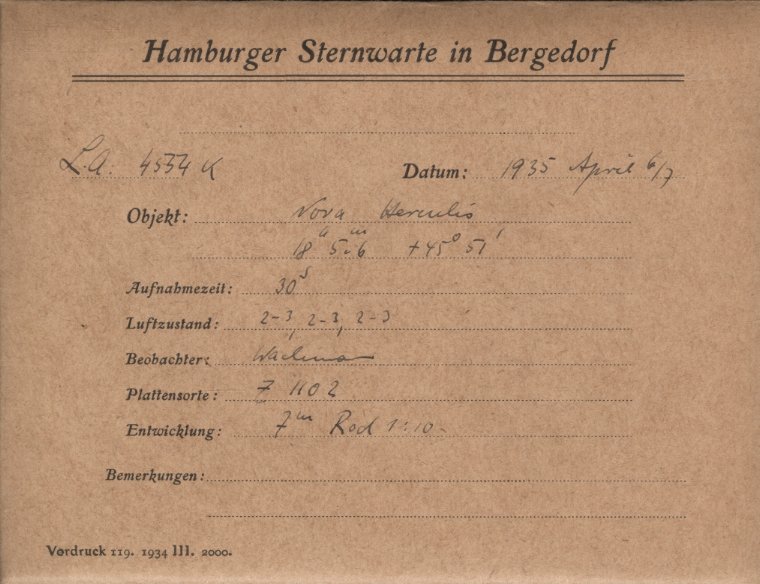 Hamburger Sternwarte in Bergedorf
L.A. 4534 K Datum: 1935 April 6/7
Objekt: Nova Herculis
18ʰ 5ᵐ.6 +45° 51'
Aufnahmezeit: 30ˢ
Luftzustand: 2-3, 2-3, 2-3
Beobachter:
Plattensorte: Z 1102
Entwicklung: 7ᵐ Rod 1:10
Bemerkungen:
Vordruck 119. 1934 III. 2000.